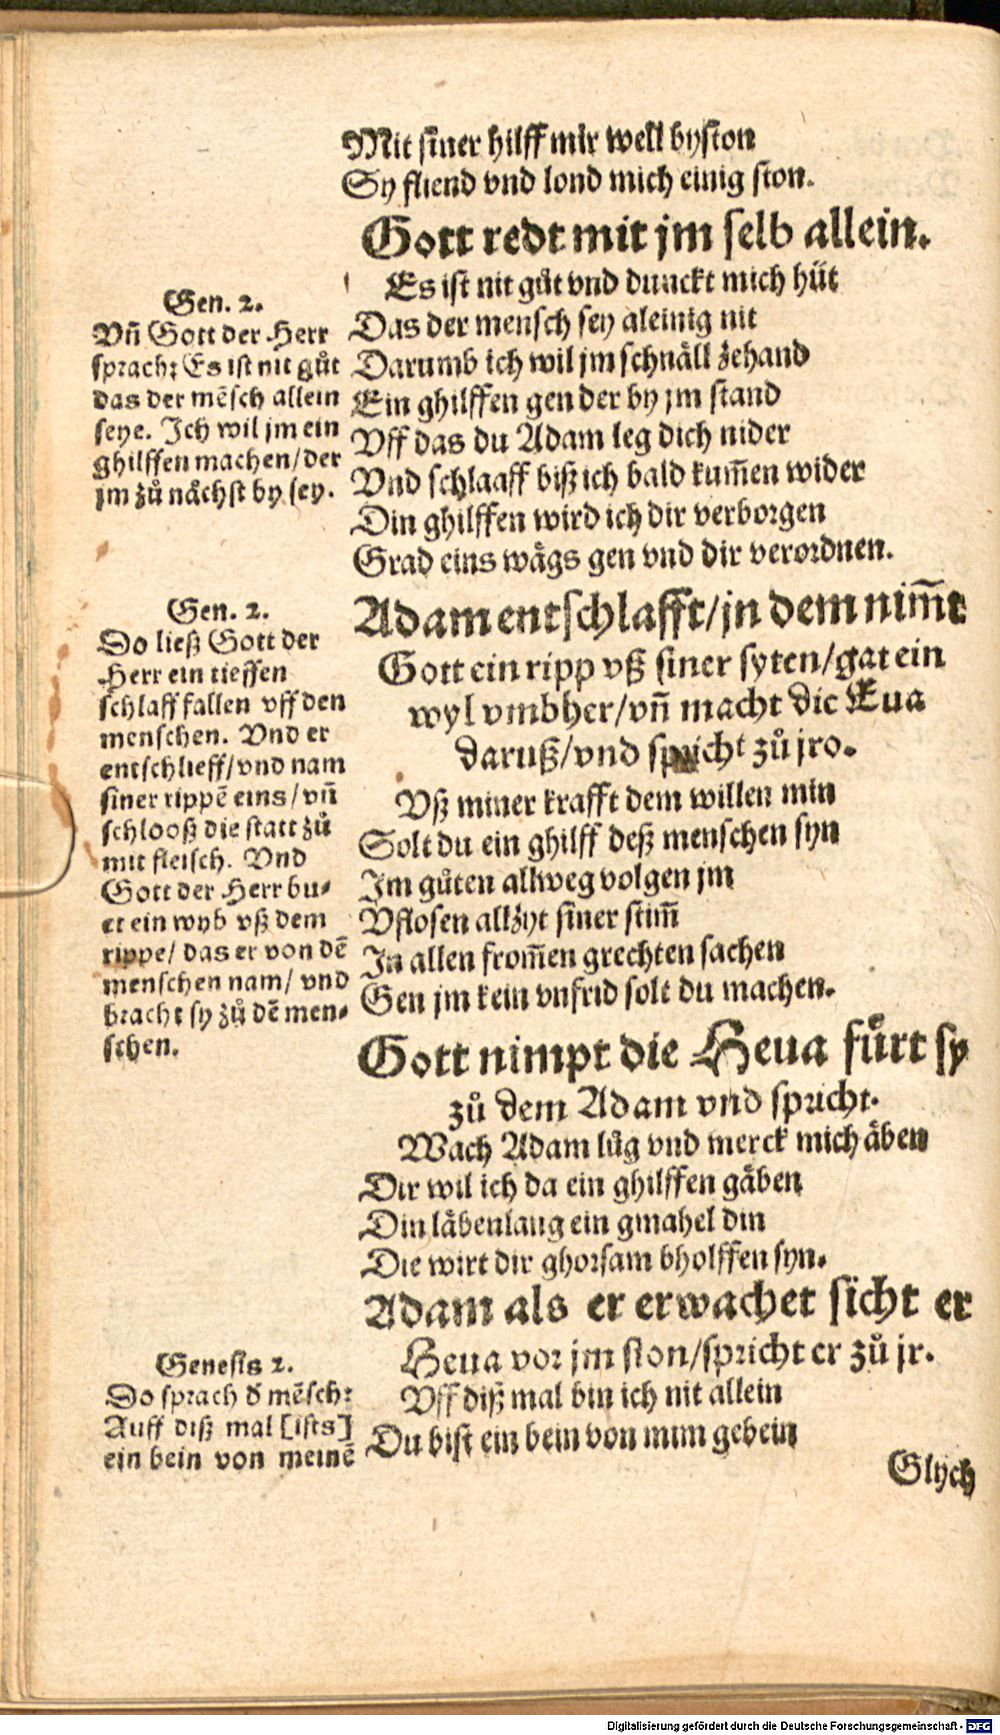 Mit siner hilff mir well byston
Sy fliend vnd lond mich einig ston.
Gott redt mit jm selb allein.
Es ist nit gůt vnd dunckt mich hüt
Das der mensch sey aleinig nit
Darumb ich wil jm schnåll zehand
Ein ghilffen gen der by jm stand
Vff das du Adam leg dich nider
Vnd schlaaff biß ich bald kum̄en wider
Din ghilffen wird ich dir verborgen
Grad eins wågs gen vnd dir verordnen.
Adam entschlafft/jn dem nim̄t
Gott ein ripp vß siner syten/gat ein
wyl vmbher/vn̄ macht die Eua
daruß/vnd spricht zů jro.
Vß miner krafft dem willen min
Solt du ein ghilff deß menschen syn
Im gůten allweg volgen jm
Vflosen allzyt siner stim̄
In allen from̄en grechten sachen
Gen jm kein vnfrid solt du machen.
Gott nimpt die Heua fůrt sy
zů dem Adam vnd spricht.
Wach Adam lůg vnd merck mich åben
Dir wil ich da ein ghilffen gåben
Din låbenlang ein gmahel din
Die wirt dir ghorsam bholffen syn.
Adam als er erwachet sicht er
Heua vor jm ston/spricht er zů jr.
Vff diß mal bin ich nit allein
Du bist ein bein von mim gebein
Glych
Gen. 2.
Vn̄ Gott der Herr
sprach: Es ist nit gůt
das der mẽsch allein
seye. Ich wil jm ein
ghilffen machen/der
jm zů nåchst by sey.
Gen. 2.
Do ließ Gott der
Herr ein tieffen
schlaff fallen vff den
menschen. Vnd er
entschlieff/vnd nam
siner rippẽ eins/vn̄
schlooß die statt zů
mit fleisch. Vnd
Gott der Herr bu-
et ein wyb vß dem
rippe/ das er von dẽ
menschen nam/ vnd
bracht sy zů dẽ men-
schen.
Genesis 2.
Do sprach d̄ mẽsch:
Auff diß mal [ists]
ein bein von meinẽ
Digitalisierung gefördert durch die Deutsche Forschungsgemeinschaft - DFG